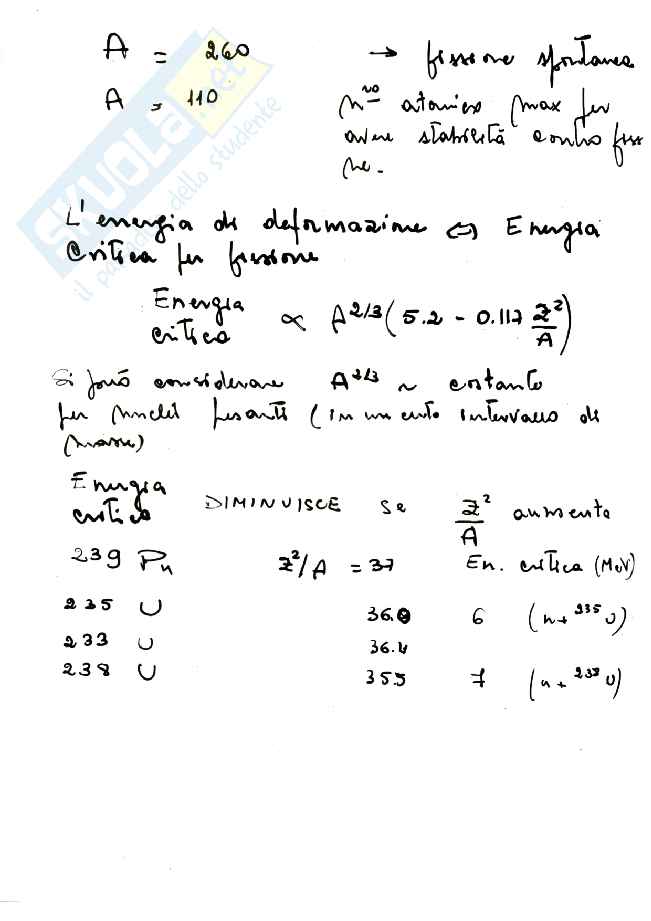 A = 260 → fissione spontanea
A = 110 nro atomico max per
avere stabilità contro fiss
ne.
L'energia di deformazione ⇔ Energia
Critica per fissione
Energia
critica ∝ A^2/3 (5.2 - 0.117 Z^2/A)
Si può considerare A^2/3 ~ costante
per nuclei pesanti (in un certo intervallo di
masse)
Energia
critica DIMINUISCE se Z^2/A aumenta
239 Pu Z^2/A = 37 En. critica (MeV)
235 U 36.0 6 (n + 235 U)
233 U 36.4
238 U 35.5 7 (n + 238 U)
SKUOLA.net
il paradiso dello studente